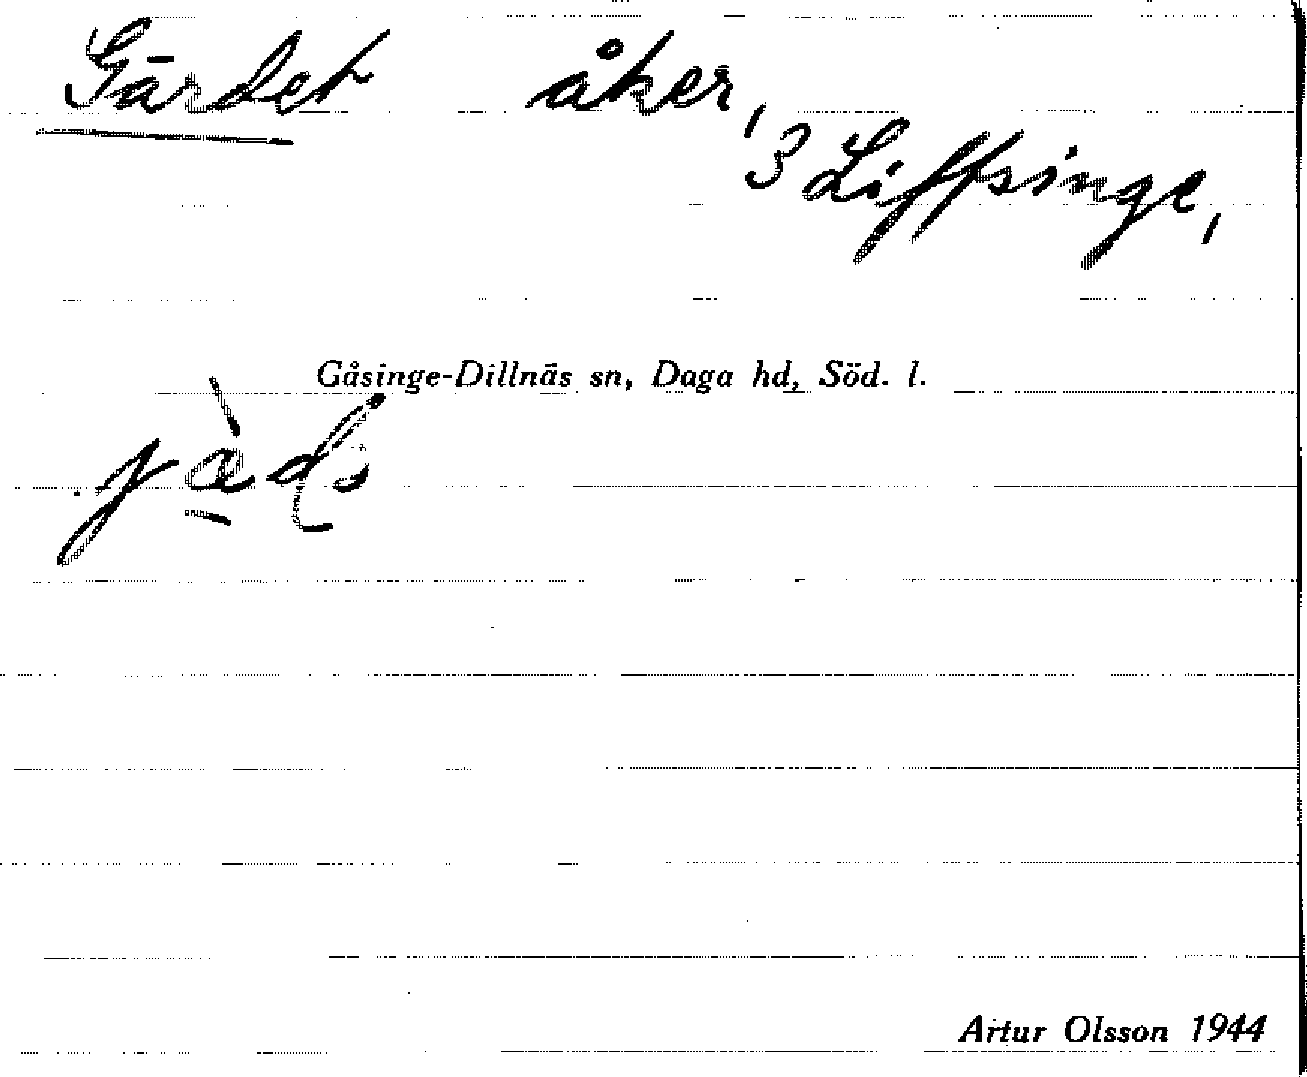 Gärdet åker,
3 Liffsinge,
Gåsinge-Dillnäs sn, Daga hd, Söd. l.
Artur Olsson 1944